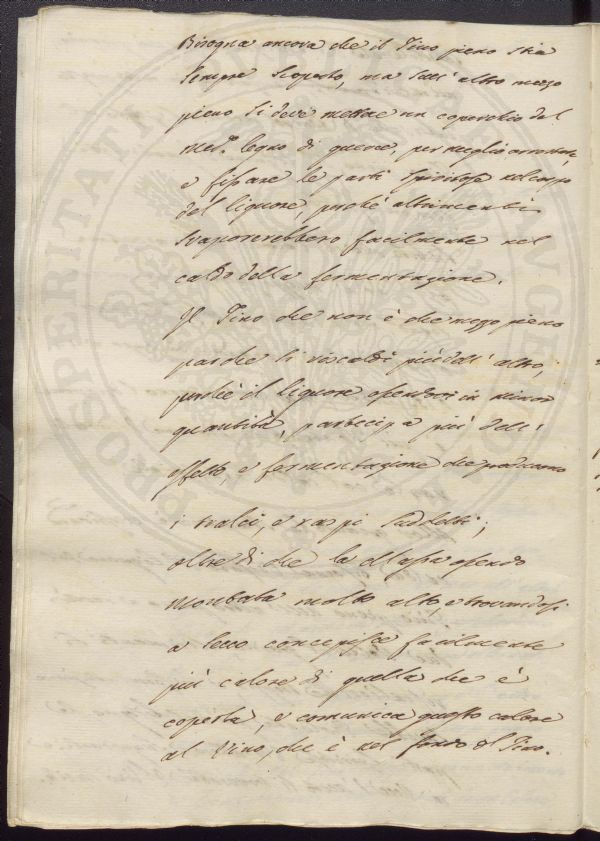 Bisogna ancora che il Tino pieno stia
sempre scoperto, ma sull' altro mezzo
pieno si deve mettere un coperchio del
med.º legno di querce, per meglio
e fissare le parti spiritose nel corpo
del liquore, perchè altrimenti
svaporerebbero facilmente nel
caldo della fermentazione.
Il Tino che non è che mezzo pieno
pare che si riscaldi più dell' altro,
perchè il liquore essendovi in minor
quantità, partecipa più dell'
effetto, e fermentazione che producono
i tralci, e raspi suddetti;
oltre di che la Massa essendo
montata molto alto, e trovandosi
a secco concepisce facilmente
più calore di quella che è
coperta, e comunica questo calore
al Vino, che è nel fondo del Tino.
PROSPERITATI PVBLICAE AVGENDAE